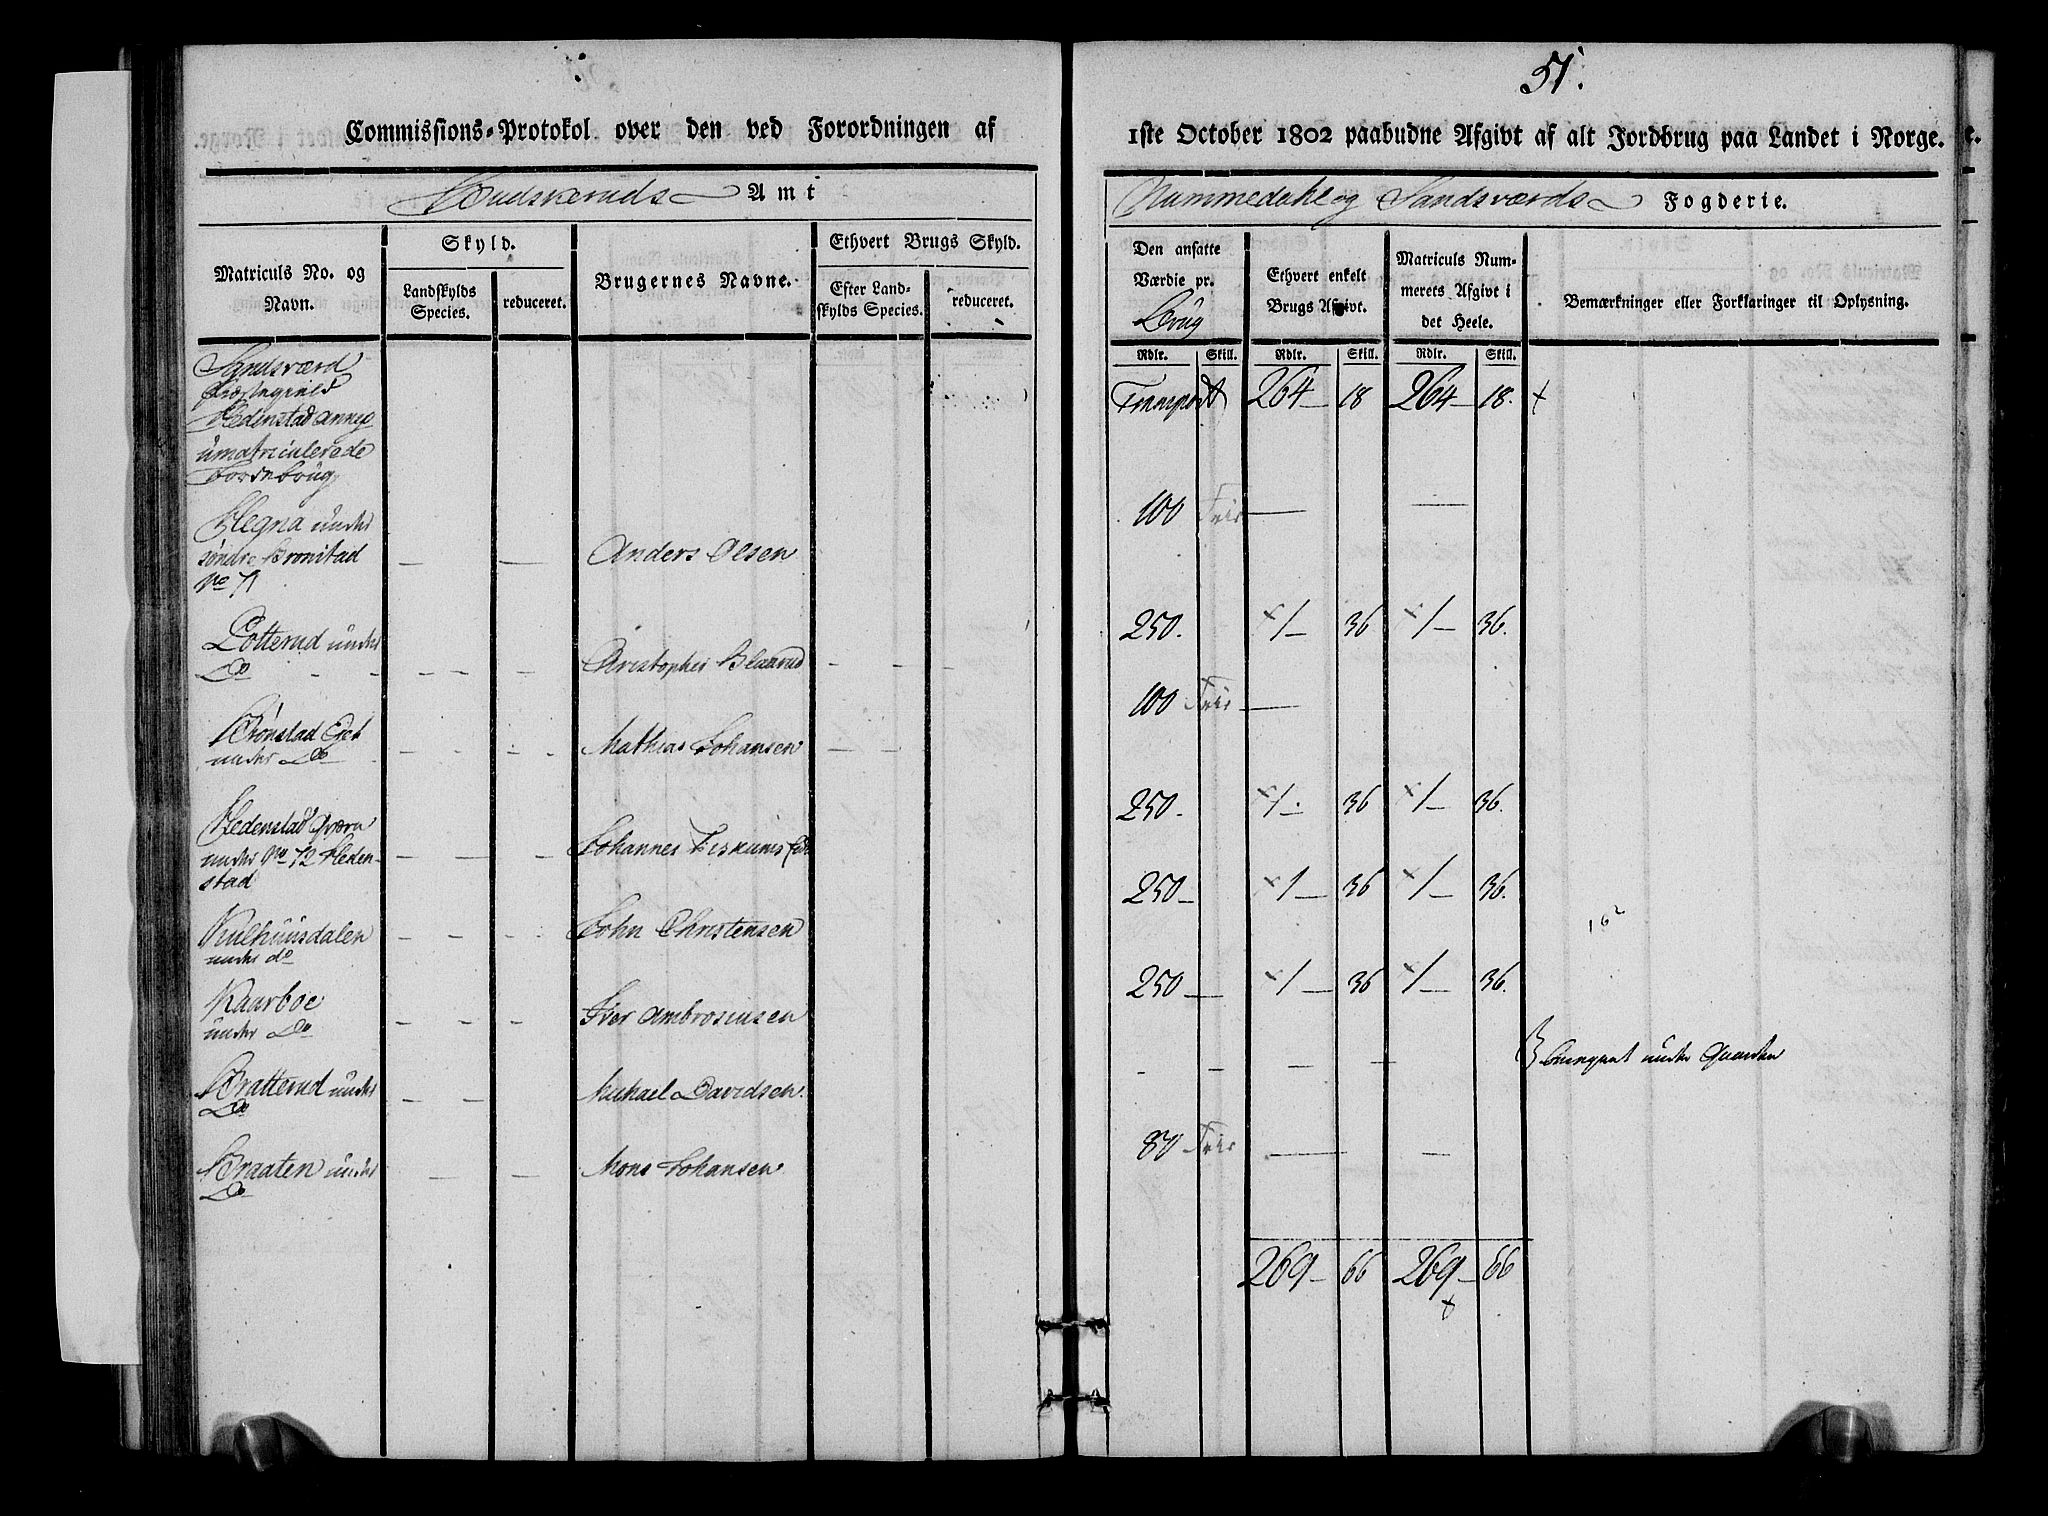 51.
Commissions-Protokol over den ved Forordningen af
1ste October 1802 paabudne Afgivt af alt Jordbrug paa Landet i Norge.
Buskeruds Amt
Nummedahl og Sandsværds Fogderie.
Matriculs No. og Navn.
Skyld.
Landskylds Species.
reduceret.
Brugernes Navne.
Ethvert Brugs Skyld.
Efter Landskylds Species.
reduceret.
Den ansatte Værdie pr. Brug
Ethvert enkelt Brugs Afgivt.
Matriculs Nummerets Afgivt i det Heele.
Bemærkninger eller Forklaringer til Oplysning.
Rdlr. Skill. Rdlr. Skill. Rdlr. Skill.
Sandsværd
Præstegield
Hedenstad Annex
umatriculerede
Jordebrug
Transport 264 18 264 18.
Hegna under
søndre Bronstad
No 71
Anders Olsen
100 Frie
Lotterud under
Do
Christopher Blaarud
250. 1 36 1 36.
Brønstad Eget
under Do
Mathias Johansen
100 Frie
Hedenstad Qværn
under No 72 Hedenstad
Johannes
250. 1 36 1 36.
Kulhuusdalen
under do
John Christensen
250 1 36 1 36.
Kaarboe
under Do
Iver Ambrosiusen
250 1 36 1 36.
Bratterud under
Do
Michael Davidsen.
under Gaarden
Braaten under
Do
Mons Johansen
80 Frie
269 66 269 66